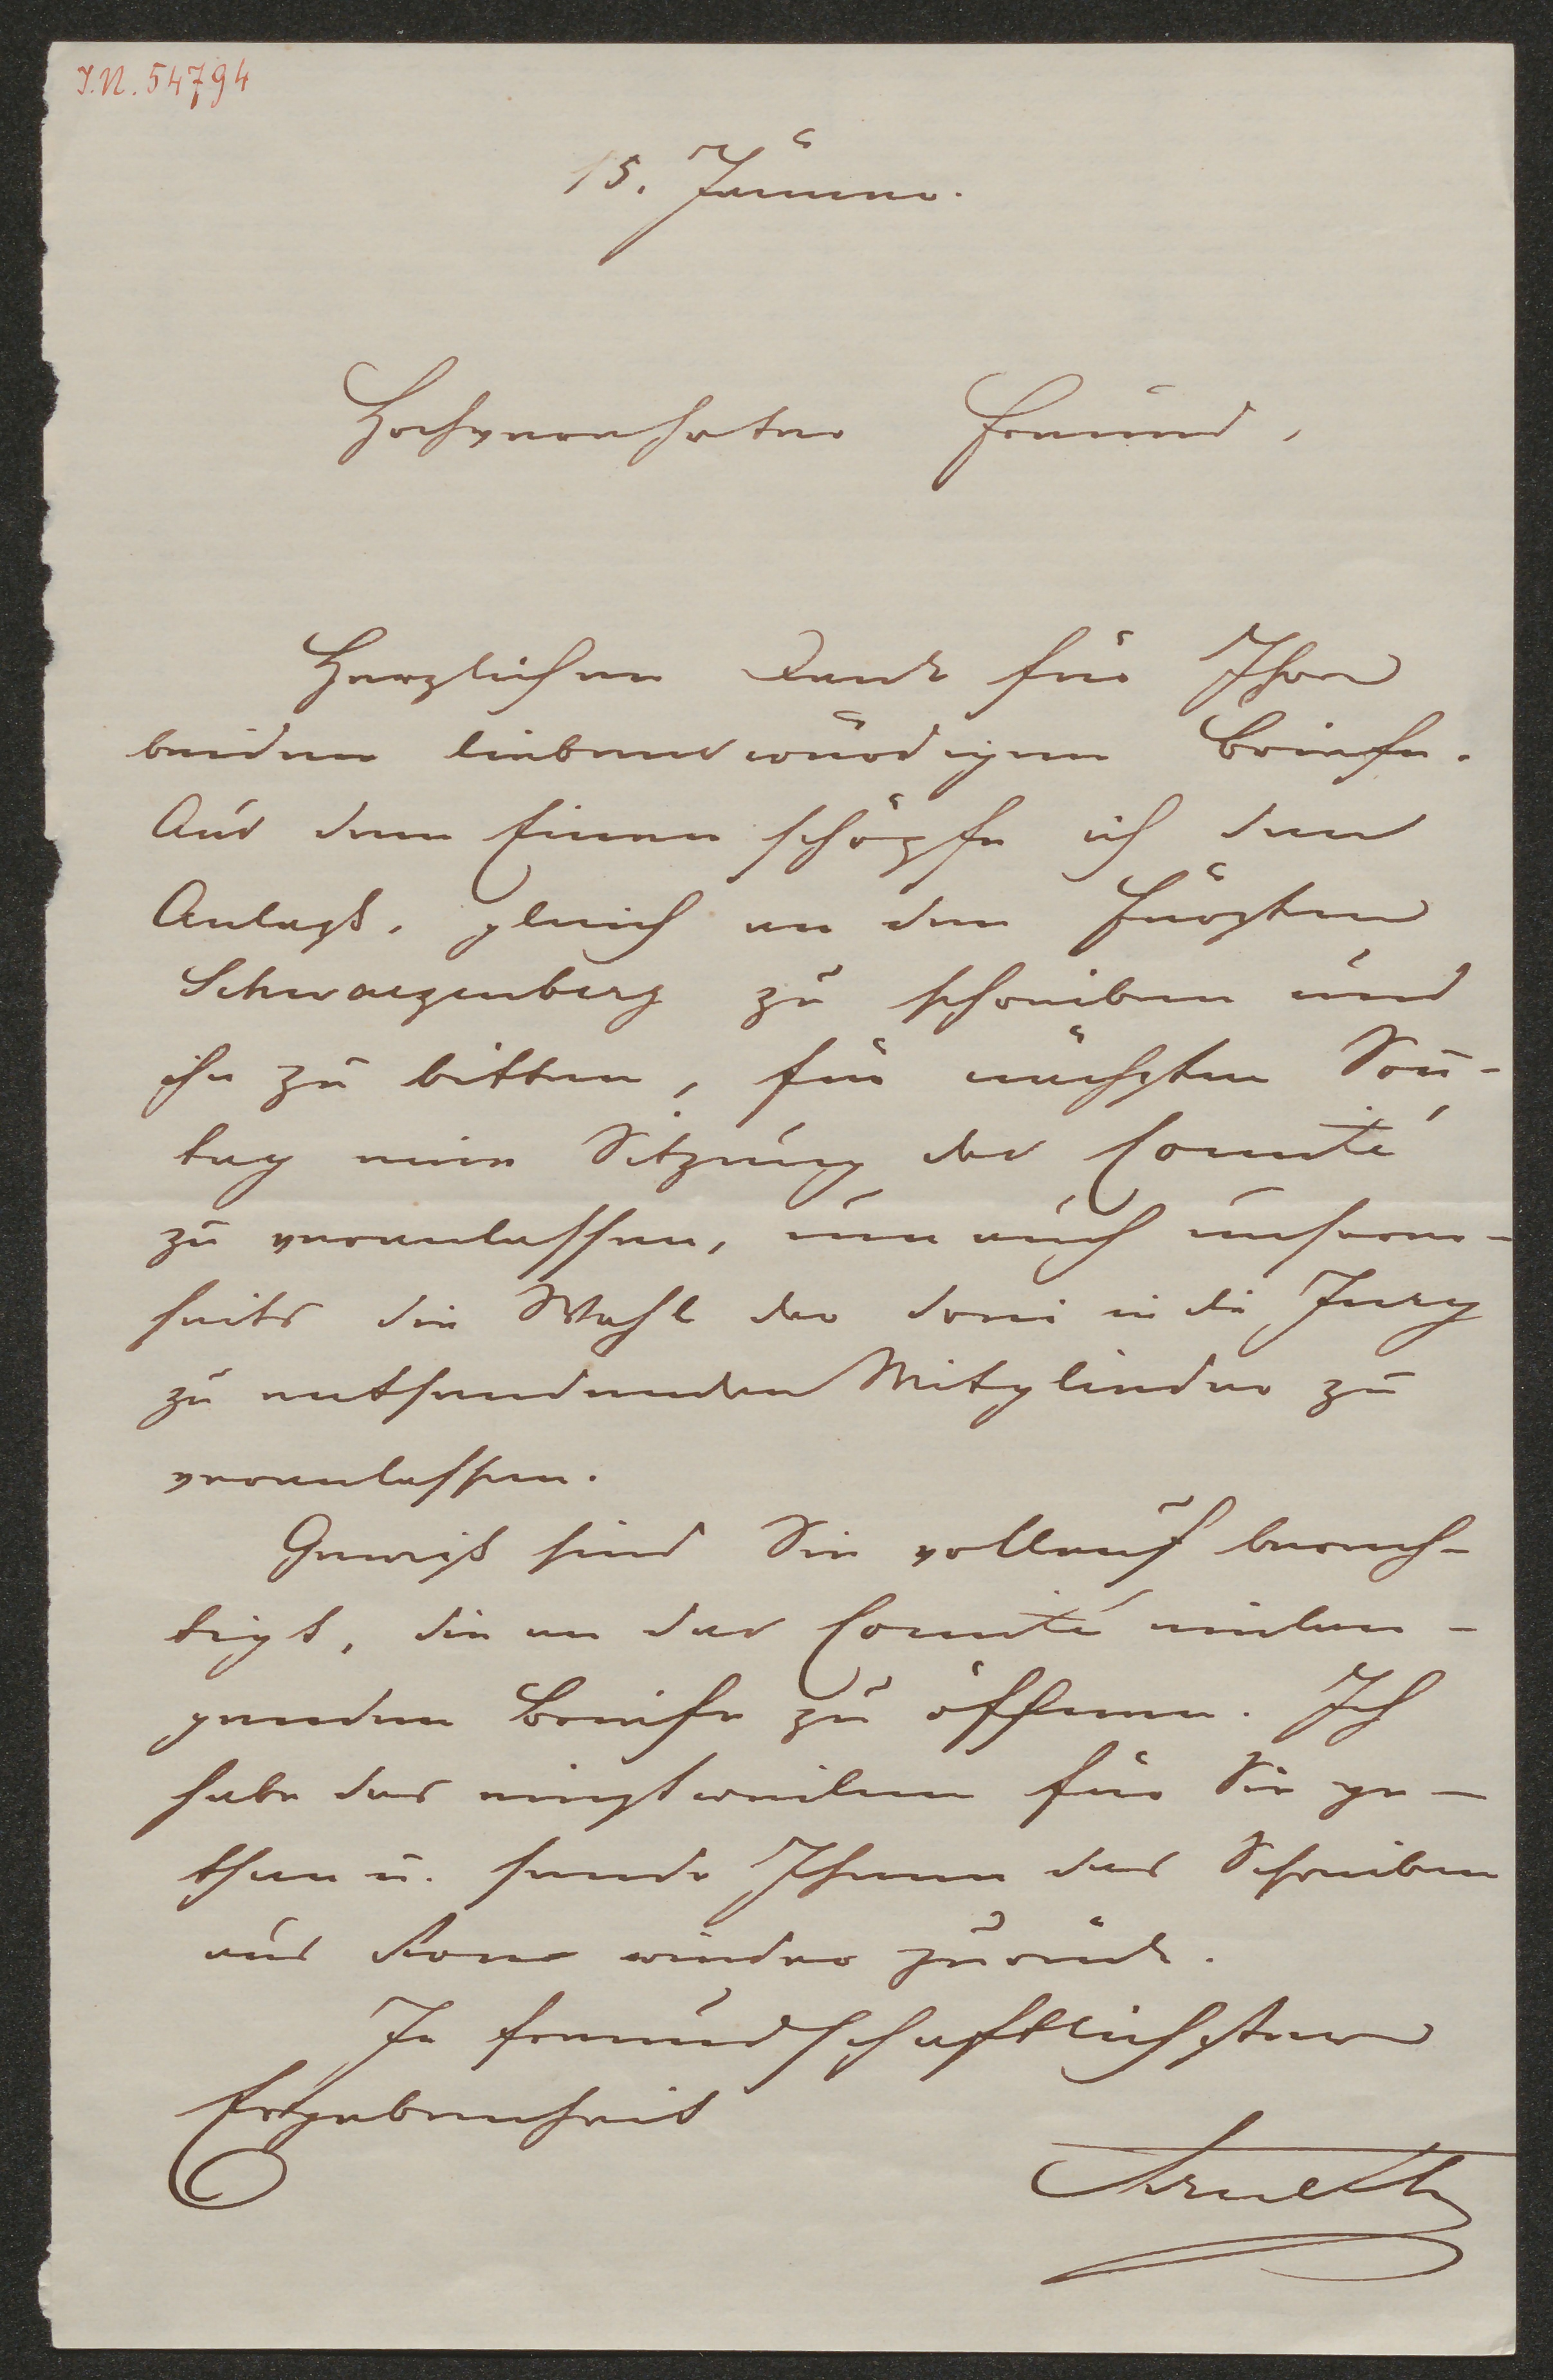 I.N. 54794
15. Jänner.
Hochverehrter Freund,
Herzlichen Dank für Ihre
beiden liebenswürdigen Briefe.
Aus dem Einen schöpfe ich den
Anlaß, gleich an den Fürsten
Schwarzenberg zu schreiben und
ihn zu bitten, für nächsten Son̄-
tag eine Sitzung des Comité
zu veranlassen, um auch unserer-
seits die Wahl der drei in die Jury
zu entsendenden Mitglieder zu
veranlassen.
Gewiß sind Sie vollauf berech-
tigt, die an das Comité einlan-
genden Briefe zu öffnen. Ich
habe das einstweilen für Sie ge-
than u. sende Ihnen das Schreiben
aus Rom wieder zurück.
In freundschaftlichster
Ergebenheit
Arneth